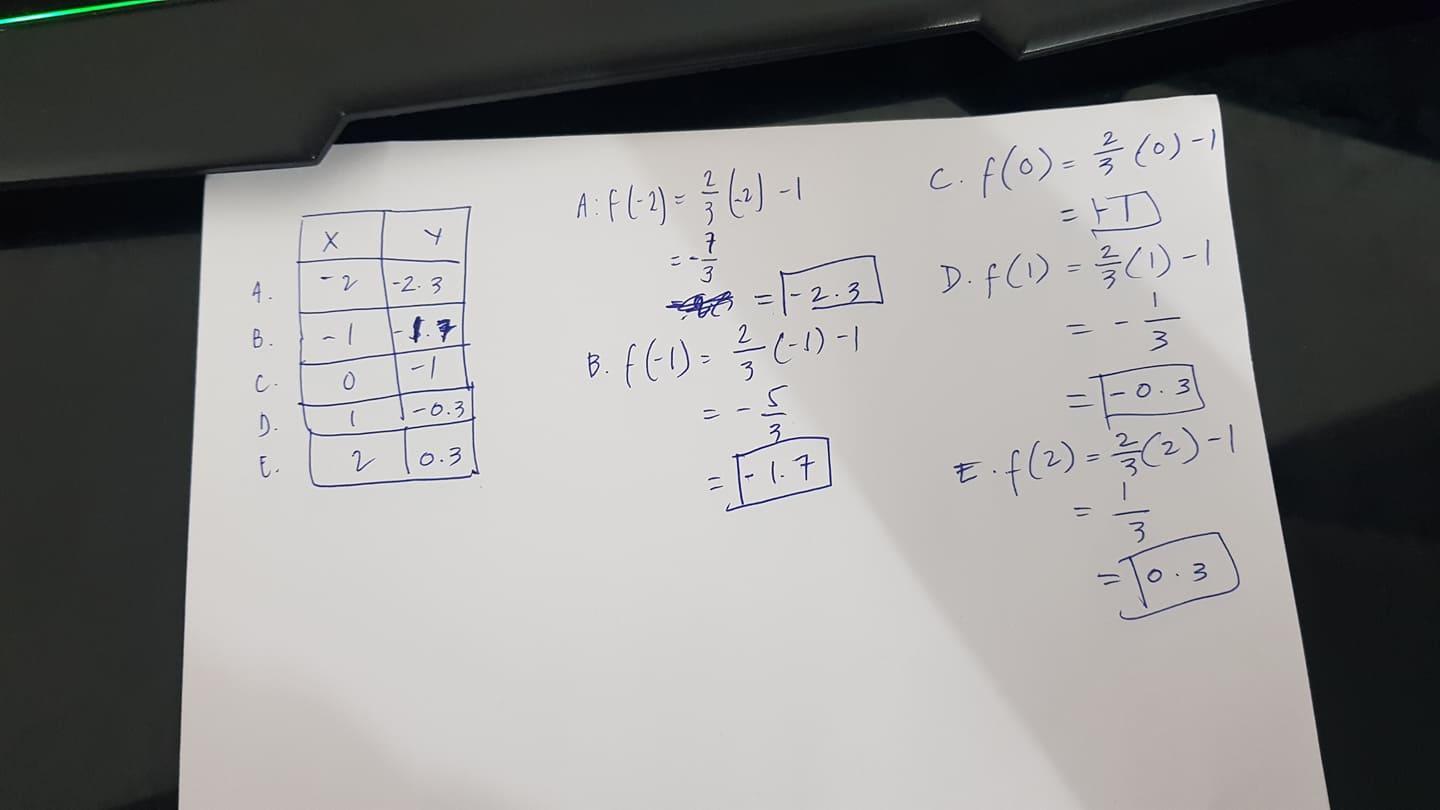 X Y
A. -2 -2.3
B. -1 -1.7
C. 0 -1
D. 1 -0.3
E. 2 0.3
A: f(-2) = 2/3 (-2) -1
= -7/3
= -2.3
B. f(-1) = 2/3 (-1) -1
= -5/3
= -1.7
C. f(0) = 2/3 (0) -1
= -1
D. f(1) = 2/3 (1) -1
= -1/3
= -0.3
E. f(2) = 2/3 (2) -1
= 1/3
= 0.3